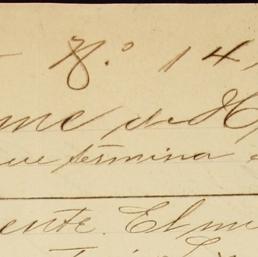 N.º 14
me de H
ue termina
ente. El mu